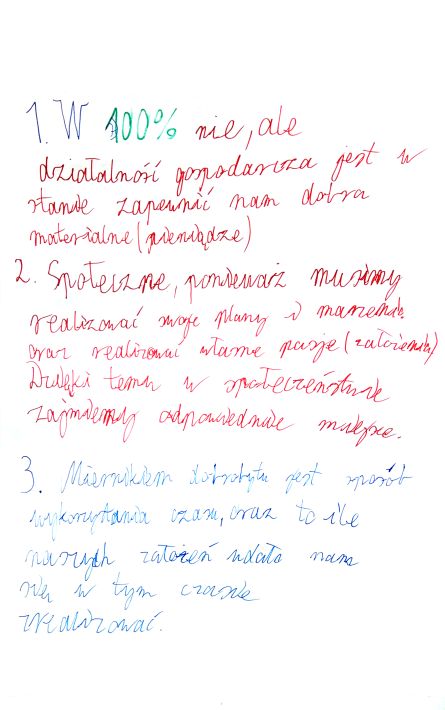 1. W 100% nie, ale
działalność gospodarcza jest w
stanie zapewnić nam dobra
materialne (pieniądze)
2. Społeczne, ponieważ musimy
realizować swoje plany i marzenia
oraz realizować własne pasje (założenia)
Dzięki temu w społeczeństwie
zajmiemy odpowiednie miejsce.
3. Miernikiem dobrobytu jest sposób
wykorzystania czasu, oraz to ile
naszych założeń udało nam
się w tym czasie
zrealizować.